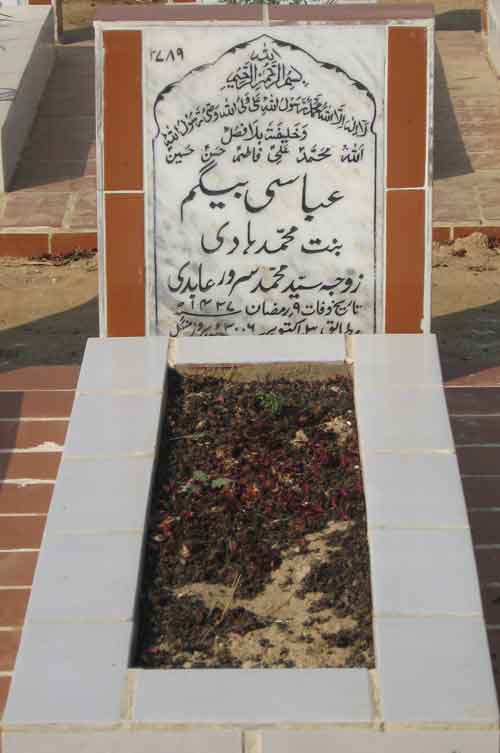 ۷۸۹
الله
بسم الله الرحمن الرحیم
لا الہ الا اللہ محمد رسول اللہ علی ولی اللہ وصی رسول اللہ
وخلیفتہ بلا فصل
اللہ محمد علی فاطمہ حسن حسین
عباسی بیگم
بنت محمد ہادی
زوجہ سید محمد سرور عابدی
تاریخ وفات ۹ رمضان ۱۴۲۷ھ
مطابق ۳ اکتوبر ۲۰۰۶ء بروز منگل